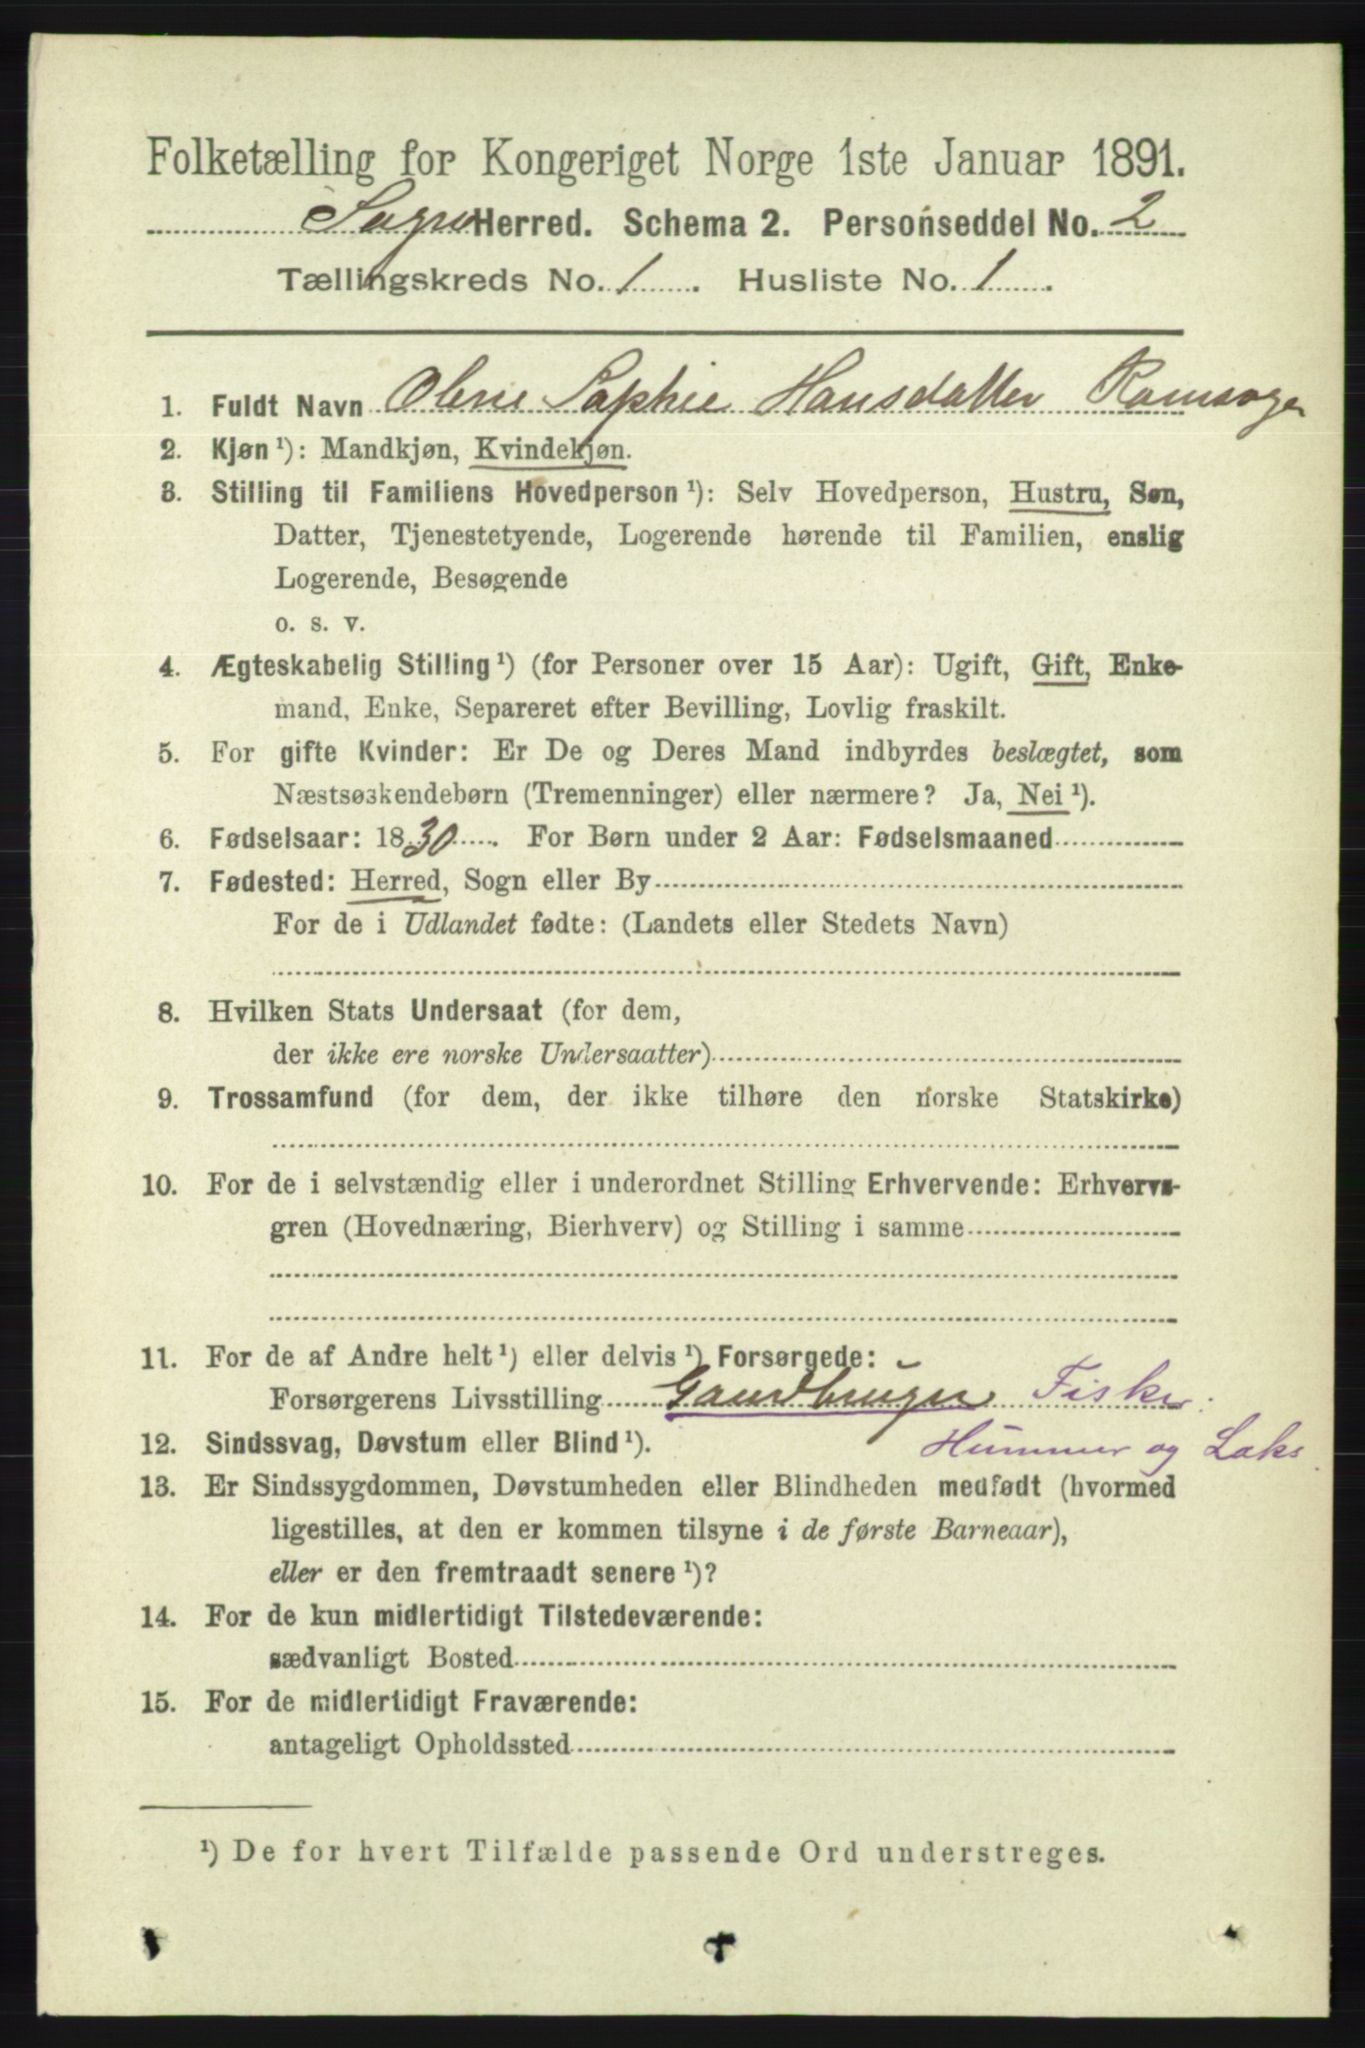 Folketælling for Kongeriget Norge 1ste Januar 1891.
Herred. Schema 2. Personseddel No. 2
Tællingskreds No. 1. Husliste No. 1.
1. Fuldt Navn Olene Sophie Hansdatter
2. Kjøn ¹): Mandkjøn, Kvindekjøn.
3. Stilling til Familiens Hovedperson ¹): Selv Hovedperson, Hustru, Søn,
Datter, Tjenestetyende, Logerende hørende til Familien, enslig
Logerende, Besøgende
o. s. v.
4. Ægteskabelig Stilling ¹) (for Personer over 15 Aar): Ugift, Gift, Enke-
mand, Enke, Separeret efter Bevilling, Lovlig fraskilt.
5. For gifte Kvinder: Er De og Deres Mand indbyrdes beslægtet, som
Næstsøskendebørn (Tremenninger) eller nærmere? Ja, Nei ¹).
6. Fødselsaar: 1830. For Børn under 2 Aar: Fødselsmaaned
7. Fødested: Herred, Sogn eller By
For de i Udlandet fødte: (Landets eller Stedets Navn)
8. Hvilken Stats Undersaat (for dem,
der ikke ere norske Undersaatter)
9. Trossamfund (for dem, der ikke tilhøre den norske Statskirke)
10. For de i selvstændig eller i underordnet Stilling Erhvervende: Erhvervs-
gren (Hovednæring, Bierhverv) og Stilling i samme
11. For de af Andre helt ¹) eller delvis ¹) Forsørgede:
Forsørgerens Livsstilling Gaardbruger Fisker.
12. Sindssvag, Døvstum eller Blind ¹). Hummer og Laks.
13. Er Sindssygdommen, Døvstumheden eller Blindheden medfødt (hvormed
ligestilles, at den er kommen tilsyne i de første Barneaar),
eller er den fremtraadt senere ¹)?
14. For de kun midlertidigt Tilstedeværende:
sædvanligt Bosted
15. For de midlertidigt Fraværende:
antageligt Opholdssted
¹) De for hvert Tilfælde passende Ord understreges.